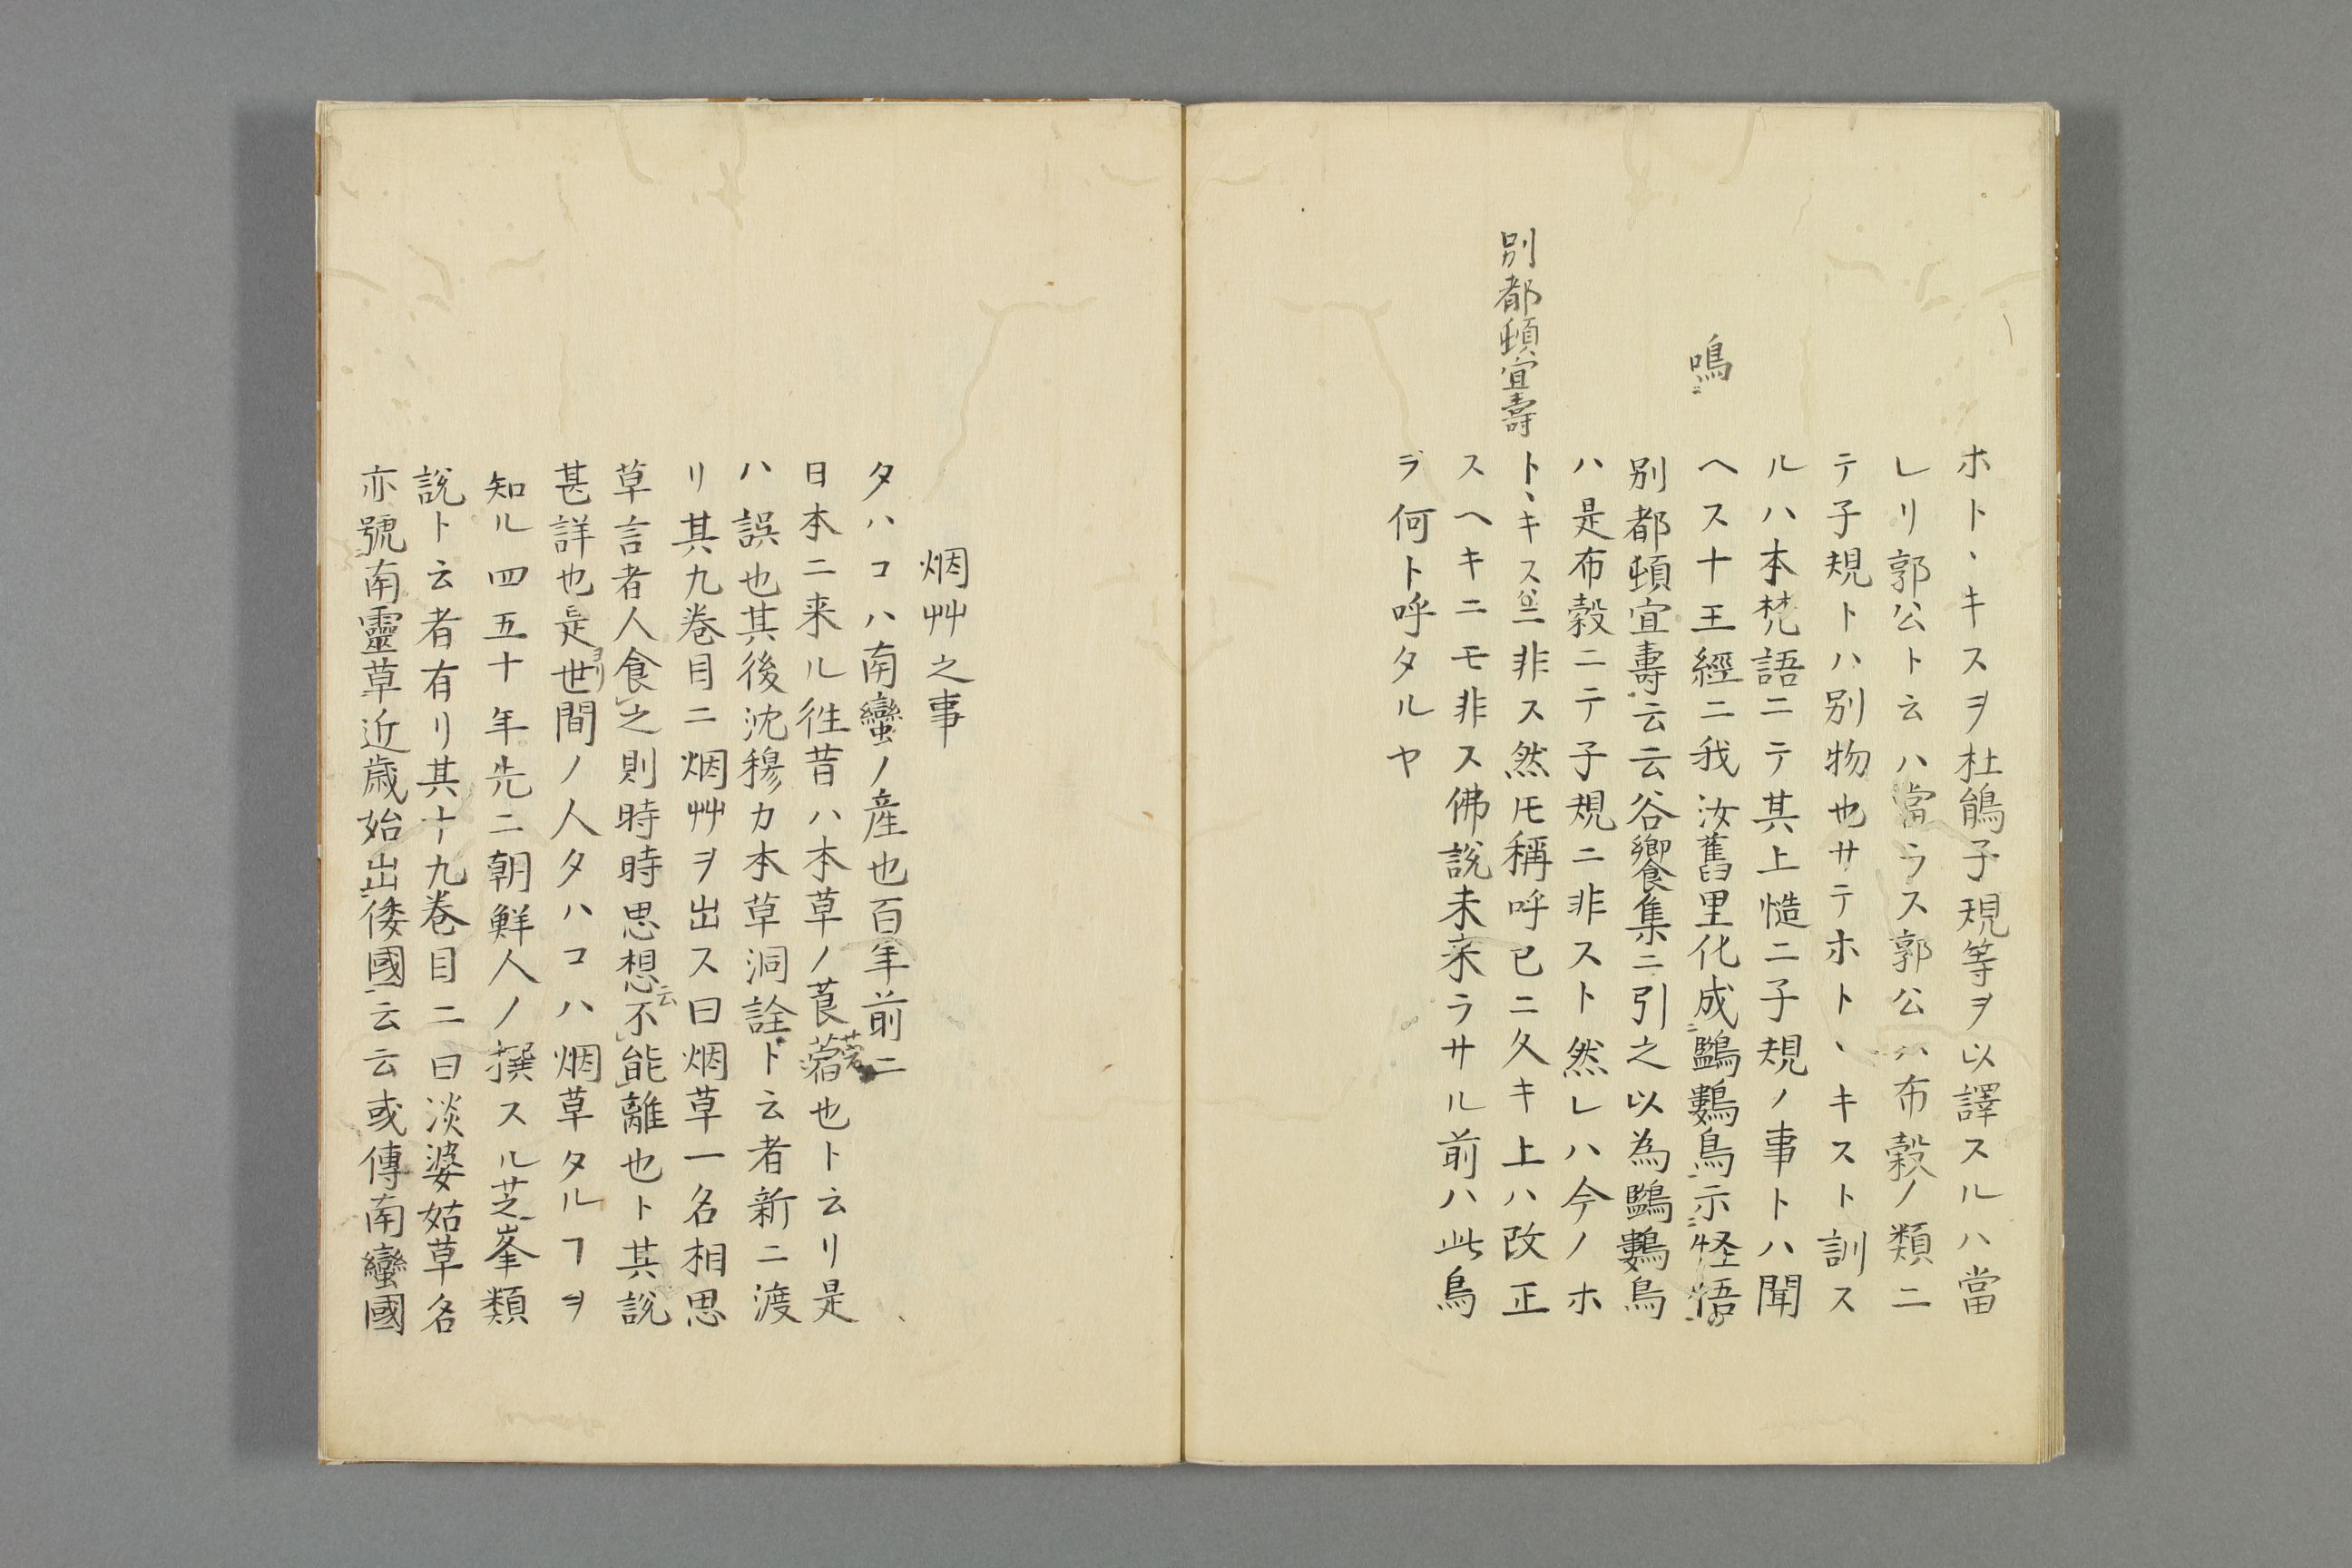 ホトヽキスヲ杜鵑子規等ヲ以譯スルハ當
レリ郭公ト云ハ當ラス郭公ハ布穀ノ類ニ
テ子規トハ別物也サテホトヽキスト訓ス
ルハ本梵語ニテ其上慥ニ子規ノ事トハ聞
鳴
ヘス十王經ニ我汝舊里化成鷖鸚鳥示怪悟
別都頓宜壽云云谷響集ニ引之以為鷖鸚鳥
ハ是布穀ニテ子規ニ非スト然レハ今ノホ
別都頓宜壽
トヽキスニ非ス然𪜈稱呼已ニ久キ上ハ改正
スヘキニモ非ス佛說未来ラサル前ハ此鳥
ヲ何ト呼タルヤ
烟艸之事
タハコハ南蠻ノ産也百年前ニ
日本ニ来ル徃昔ハ本草ノ莨菪也ト云リ是
ハ誤也其後沈穆カ本草洞詮ト云者新ニ渡
リ其九巻目ニ烟艸ヲ出ス曰烟草一名相思
草言者人食之則時時思想不能離也ト其說
甚詳也是ヨリ世間ノ人タハコハ烟草タルヿヲ
知ル四五十年先ニ朝鮮人ノ撰スル芝峯類
說ト云者有リ其十九巻目ニ曰淡婆姑草名
亦號南靈草近歳始出倭國云云或傳南蠻國